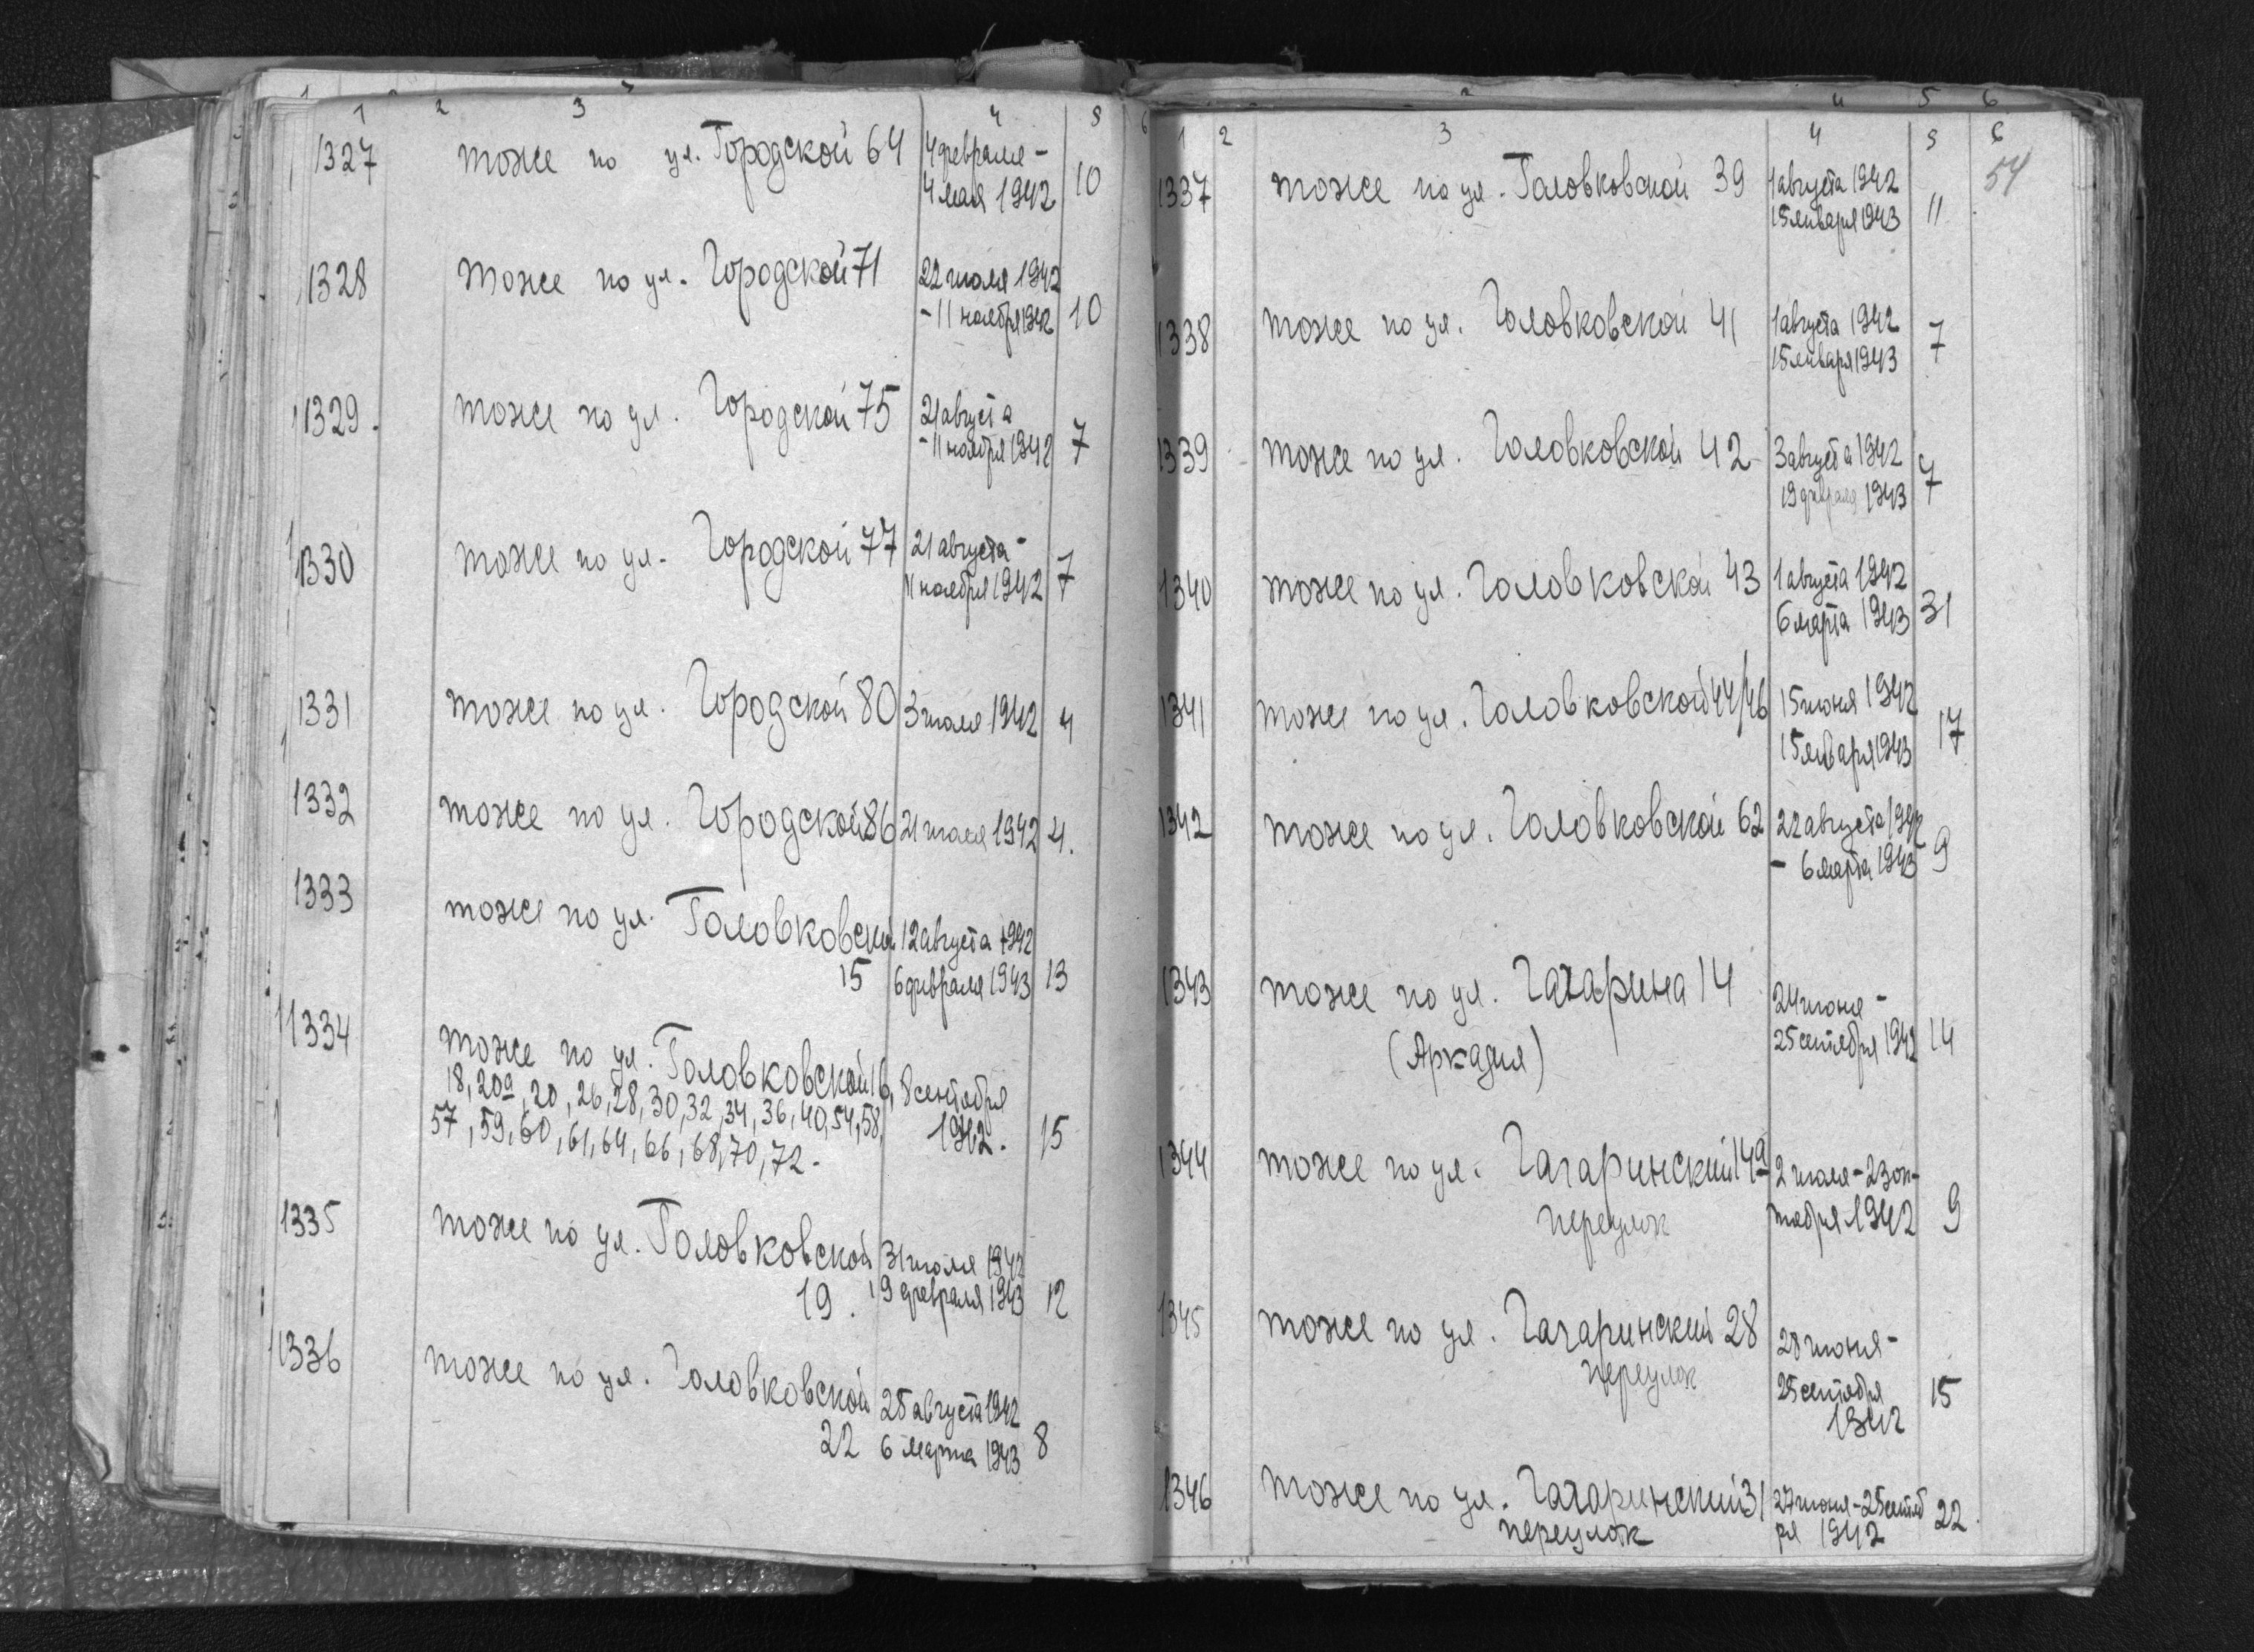 1 2 3 4 5 6
1327 тоже по ул. Городской 64 4 февраля -
4 мая 1942 10
1328 тоже по ул. Городской 71 22 июля 1942
- 11 ноября 1942 10
1329. тоже по ул. Городской 75 21 августа
- 11 ноября 1942 7
1330 тоже по ул. Городской 77 21 августа -
11 ноября 1942 7
1331 тоже по ул. Городской 80 3 июля 1942 4
1332 тоже по ул. Городской 86 21 июля 1942 4.
1333 тоже по ул. Головковской 12 августа 1942
15 6 февраля 1943 13
1334 тоже по ул. Головковской 16, 8 сентября
18, 20а, 20, 26, 28, 30, 32, 34, 36, 40, 54, 58, 1942. 15
57, 59, 60, 61, 64, 66, 68, 70, 72.
1335 тоже по ул. Головковской 31 июля 1942
19. 19 февраля 1943 12
1336 тоже по ул. Головковской 28 августа 1942
22 6 марта 1943 8
1 2 3 4 5 6
54
1337 тоже по ул. Головковской 39 1 августа 1942
15 января 1943 11
1338 тоже по ул. Головковской 41 1 августа 1942
15 января 1943 7
1339 тоже по ул. Головковской 42 3 августа 1942
19 февраля 1943 7
1340 тоже по ул. Головковской 43 1 августа 1942
6 марта 1943 31
1341 тоже по ул. Головковской 44/46 15 июня 1942
15 января 1943 17
1342 тоже по ул. Головковской 62 22 августа 1942
- 6 марта 1943 9
1343 тоже по ул. Гагарина 14 24 июня -
(Аркадия) 25 сентября 1942 14
1344 тоже по ул. Гагаринский 14а 2 июля - 23 ок-
переулок тября 1942 9
1345 тоже по ул. Гагаринский 28 28 июня -
переулок 25 сентября 15
1942
1346 тоже по ул. Гагаринский 31 27 июня - 25 сентяб
переулок ря 1942 22.